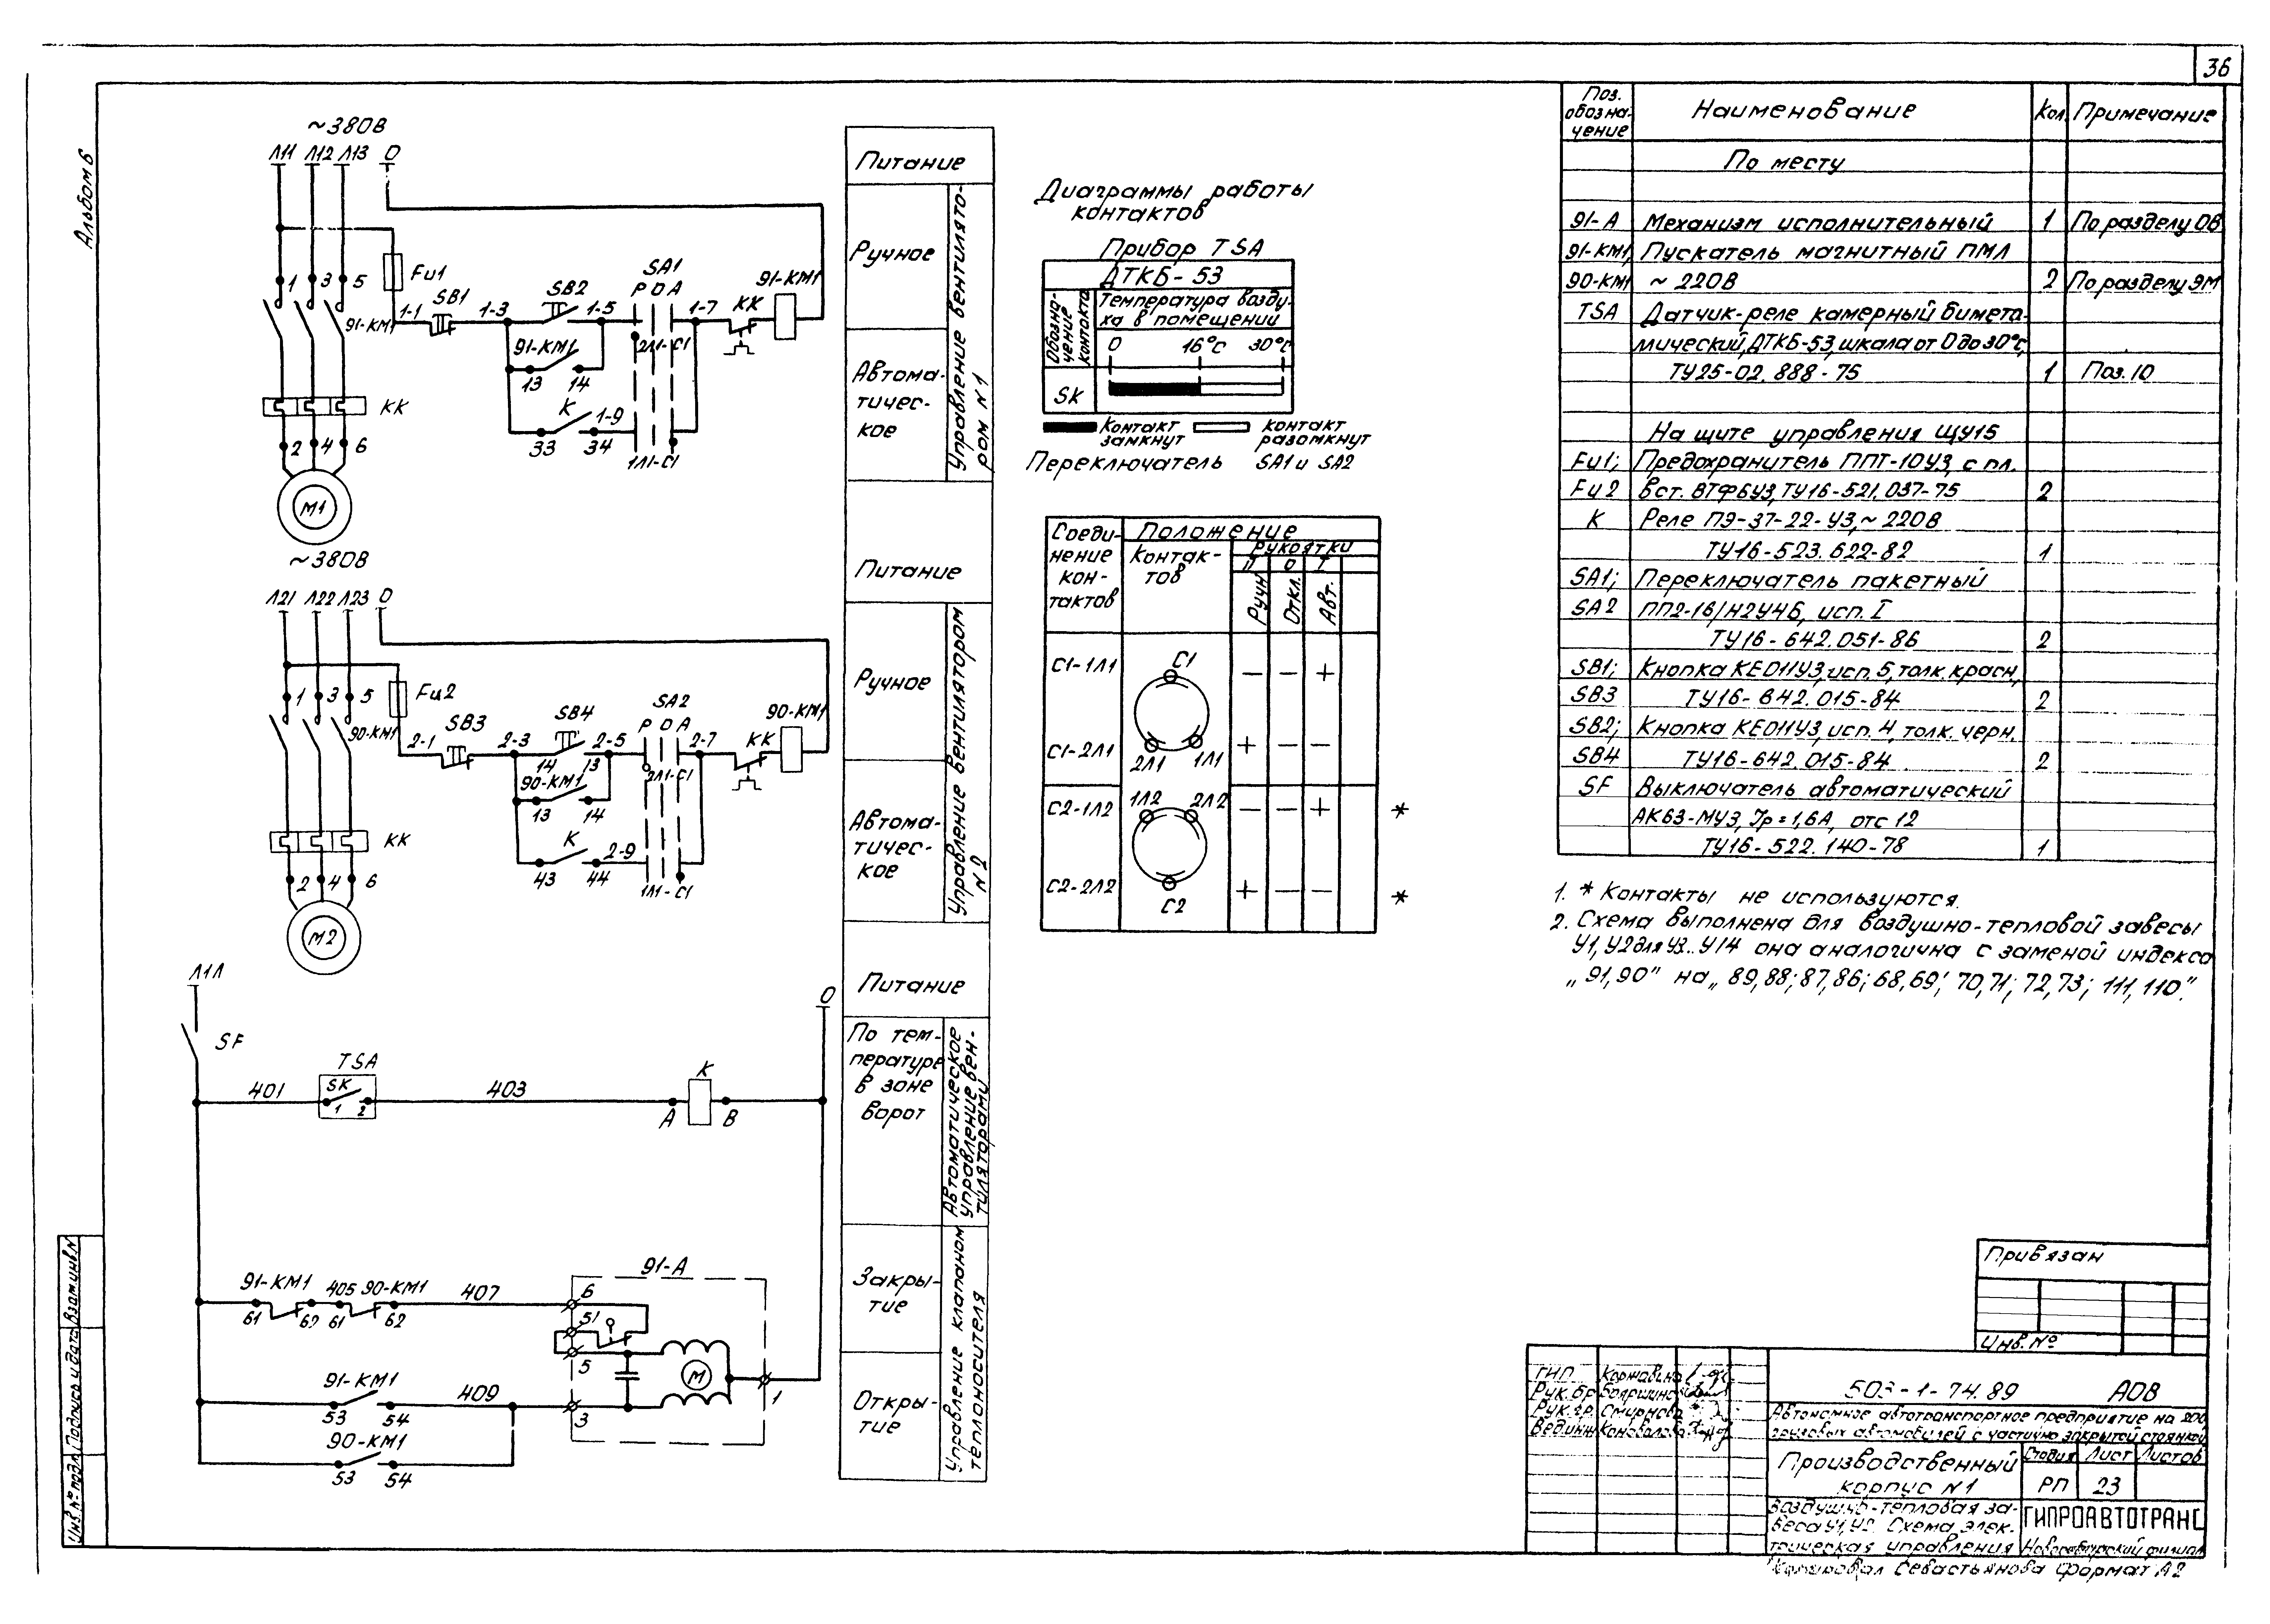 36
Альбом 6
~380В
Л11 Л12 Л13 О
1 3 5
91-КМ1
Fu1
1-1
SB1
1-3
SB2
1-5
SA1
Р О А
1-7
КК
91-КМ1
91-КМ1
13 14
2Л1-С1
К
1-9
33 34
1Л1-С1
КК
2 4 6
М1
~380В
Л21 Л22 Л23 О
1 3 5
90-КМ1
Fu2
2-1
SB3
2-3
SB4
2-5
SA2
Р О А
2-7
КК
90-КМ1
14 13
90-КМ1
13 14
2Л1-С1
К
2-9
43 44
1Л1-С1
КК
2 4 6
М2
Л1Л
О
SF
401
TSA
SK
1 2
403
К
А В
91-КМ1
61 62
405
90-КМ1
61 62
407
91-А
6
51
5
3
М
1
91-КМ1
53 54
409
90-КМ1
53 54
Питание
Ручное
Автома-
тичес-
кое
Управление вентилято-
ром N1
Питание
Ручное
Автома-
тичес-
кое
Управление вентилятором
N2
Питание
По тем-
пературе
в зоне
ворот
Автоматическое
управление вен-
тиляторами
Закры-
тие
Откры-
тие
Управление клапаном
теплоносителя
Диаграммы работы
контактов
Прибор TSA
ДТКБ-53
Обозна-
чение
контакта
Температура возду-
ха в помещении
0 16°С 30°С
SK
Контакт
замкнут
контакт
разомкнут
Переключатель SA1 и SA2
Соеди-
нение
кон-
тактов
Положение
Контак-
тов
Рукоятки
П О I
Ручн.
Откл.
Авт.
С1-1Л1
С1
— — +
С1-2Л1
2Л1 1Л1
+ — —
С2-1Л2
1Л2 2Л2
— — + *
С2-2Л2
С2
+ — — *
Поз.
обозна-
чение
Наименование
Кол.
Примечание
По месту
91-А Механизм исполнительный 1 По разделу ОВ
91-КМ1, Пускатель магнитный ПМЛ
90-КМ1 ~ 220В 2 По разделу ЭМ
TSA Датчик-реле камерный бимета-
лический, ДТКБ-53, шкала от 0 до 30°С,
ТУ25-02.888-75 1 Поз.10
На щите управления ЩУ15
Fu1; Предохранитель ППТ-10У3, с пл.
Fu2 вст. ВТФ6У3, ТУ16-521.037-75 2
К Реле ПЭ-37-22-У3, ~ 220В
ТУ16-523.622-82 1
SA1; Переключатель пакетный
SA2 ПП2-16/Н2У4Б, исп. I
ТУ16-642.051-86 2
SB1; Кнопка КЕ011У3, исп. 5, толк. красн,
SB3 ТУ16-642.015-84 2
SB2; Кнопка КЕ011У3, исп. 4, толк. черн.
SB4 ТУ16-642.015-84 2
SF Выключатель автоматический
АК63-МУ3, Iр=1,6А, отс 12
ТУ16-522.140-78 1
1. * Контакты не используются.
2. Схема выполнена для воздушно-тепловой завесы
У1, У2 для У3...У14 она аналогична с заменой индекса
„91,90” на „89,88; 87,86; 68,69; 70,71; 72,73; 111,110”.
Привязан
Инв. №
ГИП Коржавина
Рук. бр Бояршинова
Рук. гр. Смирнова
Вед.инж Коновалова
503-1-74.89 АОВ
Автономное автотранспортное предприятие на 200
грузовых автомобилей с частично закрытой стоянкой
Производственный
корпус N1
Стадия Лист Листов
РП 23
Воздушно-тепловая за-
веса У1, У2. Схема элек-
трическая управления
ГИПРОАВТОТРАНС
Новосибирский филиал
Копировал Севастьянова Формат А2
Инв. № подл. Подпись и дата Взам.инв.N